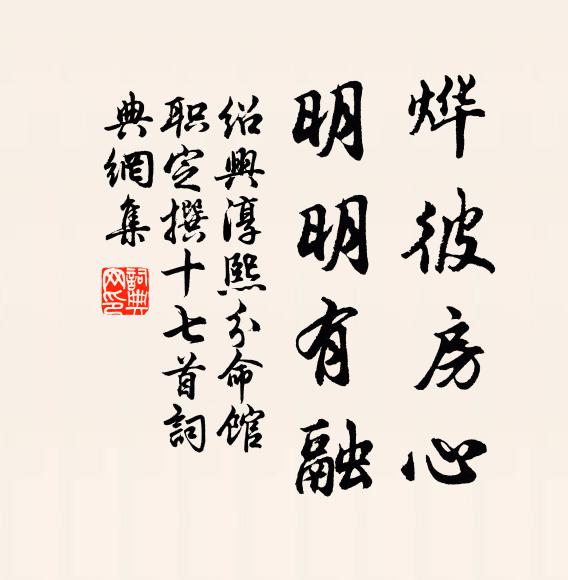 烨彼房心
明明有融
绍興淳熙分命馆
职定撰十七首詞
典網集
詞典网印